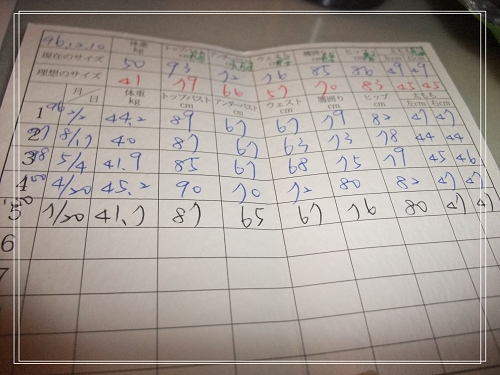 96.12.10 体重 kg トップバスト cm アンダーバスト cm ウェスト cm 腹回り cm ヒップ cm
現在のサイズ 50 93 72 76 85 86 49 49
理想のサイズ 41 79 66 57 70 83 45 45
月 日 体重 kg トップバスト cm アンダーバスト cm ウェスト cm 腹回り cm ヒップ cm もも 右cm 左cm
1 44.2 89 67 67 79 82 47 47
2 8/17 40 87 67 63 73 78 44 44
3 5/4 41.9 85 67 68 75 79 45 46
4 4/30 45.2 90 70 72 80 82 47 47
5 1/20 41.7 87 65 67 76 80 47
6
7